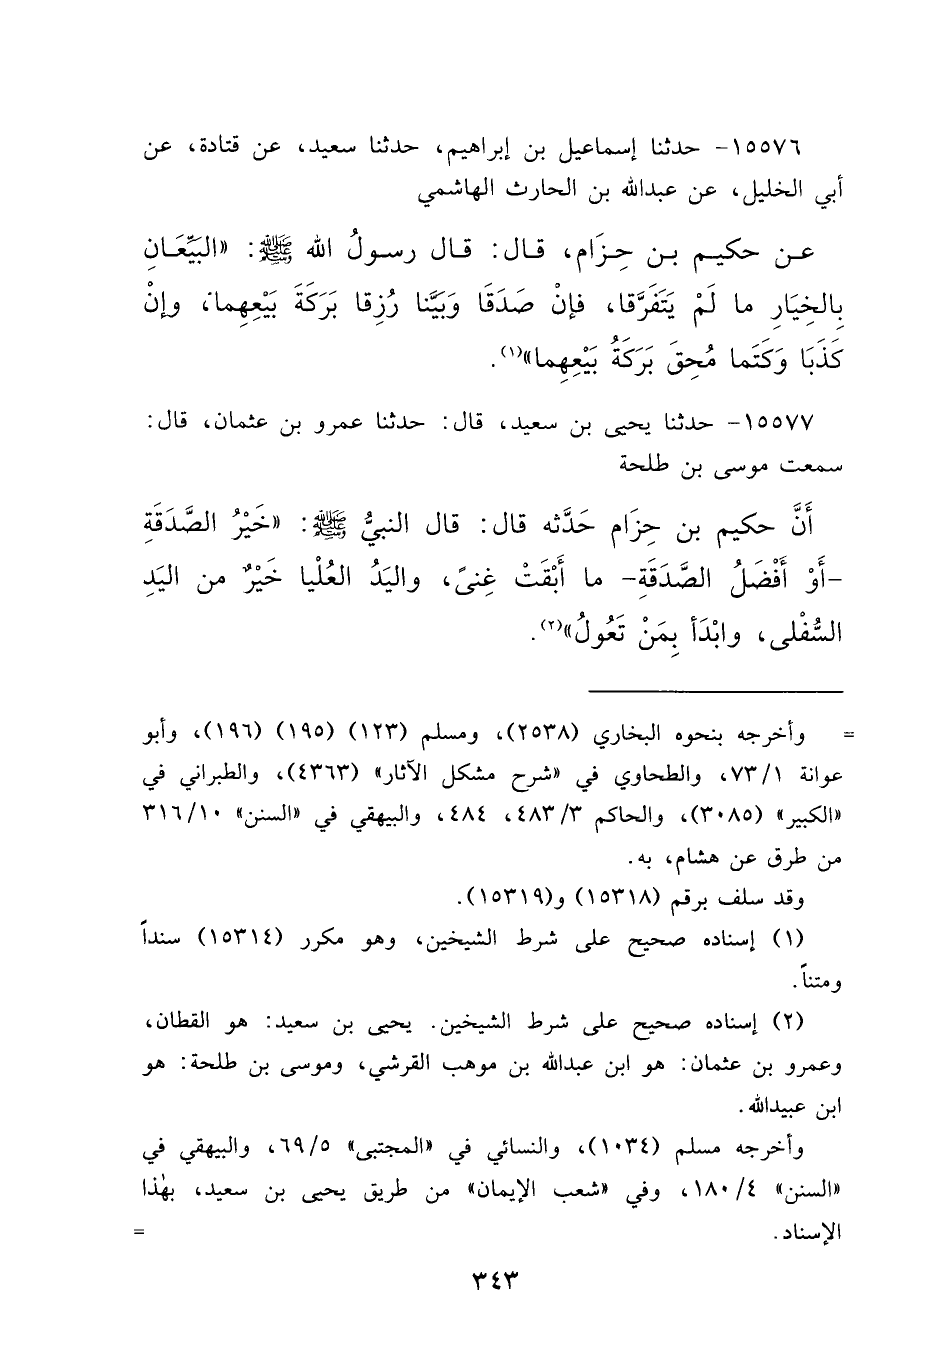 ١٥٥٧٦- حدثنا إسماعيل بن إبراهيم، حدثنا سعيد، عن قتادة، عن
أبي الخليل، عن عبدالله بن الحارث الهاشمي
عن حكيم بن حِزَام، قال: قال رسولُ الله ﷺ: «البَيِّعَانِ
بِالخِيَارِ ما لَمْ يَتَفَرَّقا، فإنْ صَدَقَا وَبَيَّنا رُزِقا بَرَكَةَ بَيْعِهِما، وإنْ
كَذَبَا وَكَتَما مُحِقَ بَرَكَةُ بَيْعِهِما»(١).
١٥٥٧٧- حدثنا يحيى بن سعيد، قال: حدثنا عمرو بن عثمان، قال:
سمعت موسى بن طلحة
أَنَّ حكيم بن حِزَام حَدَّثه قال: قال النبيُّ ﷺ: «خَيْرُ الصَّدَقَةِ
-أَوْ أَفْضَلُ الصَّدَقَةِ- ما أَبْقَتْ غِنىً، واليَدُ العُلْيا خَيْرٌ من اليَدِ
السُّفْلى، وابْدَأ بِمَنْ تَعُولُ»(٢).
= وأخرجه بنحوه البخاري (٢٥٣٨)، ومسلم (١٢٣) (١٩٥) (١٩٦)، وأبو
عوانة ٧٣/١، والطحاوي في «شرح مشكل الآثار» (٤٣٦٣)، والطبراني في
«الكبير» (٣٠٨٥)، والحاكم ٤٨٣/٣، ٤٨٤، والبيهقي في «السنن» ٣١٦/١٠
من طرق عن هشام، به.
وقد سلف برقم (١٥٣١٨) و(١٥٣١٩).
(١) إسناده صحيح على شرط الشيخين، وهو مكرر (١٥٣١٤) سنداً
ومتناً.
(٢) إسناده صحيح على شرط الشيخين. يحيى بن سعيد: هو القطان،
وعمرو بن عثمان: هو ابن عبدالله بن موهب القرشي، وموسى بن طلحة: هو
ابن عبيدالله.
وأخرجه مسلم (١٠٣٤)، والنسائي في «المجتبى» ٦٩/٥، والبيهقي في
«السنن» ١٨٠/٤، وفي «شعب الإيمان» من طريق يحيى بن سعيد، بهٰذا
الإسناد. =
٣٤٣